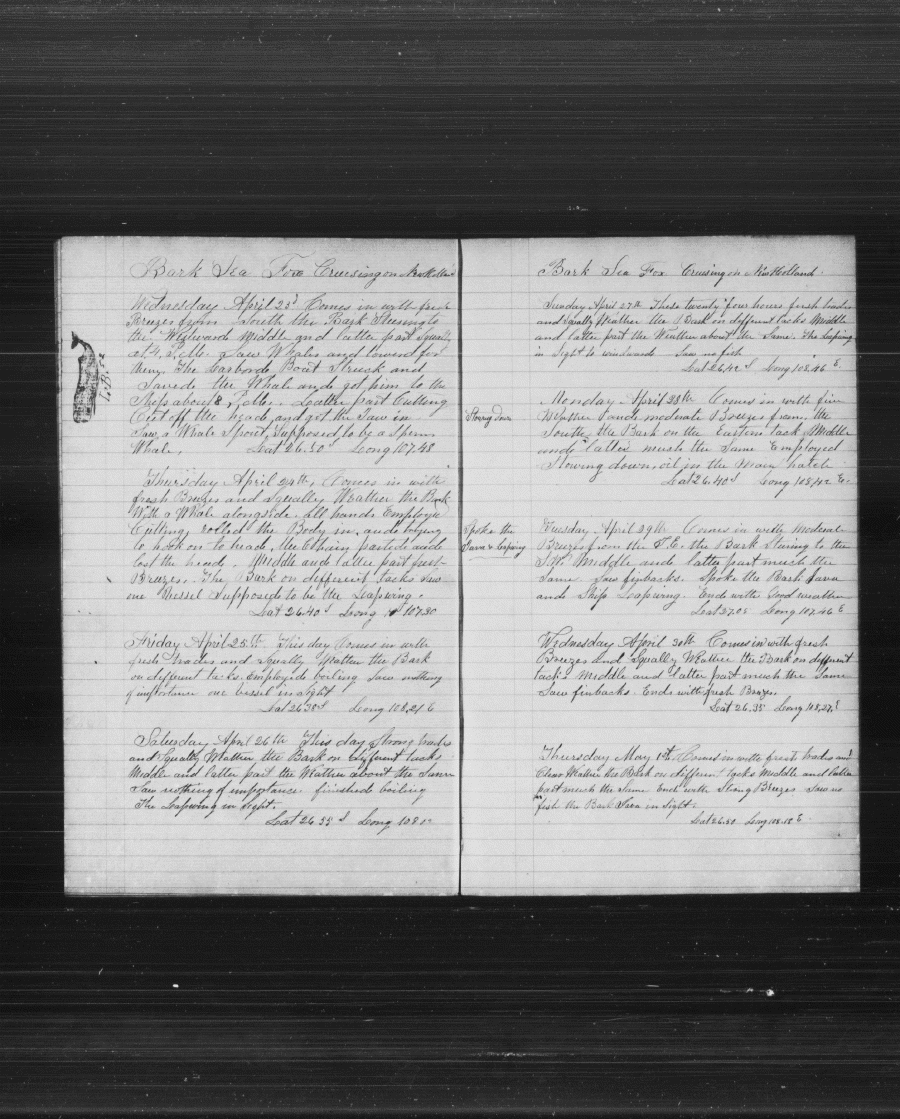 Bark Sea Fox Cruising on New Holland
Wednesday April 23d Comes in with fresh
Breezes from South the Bark Steering to
the Westward Middle and latter part Squally
at 4 P.M. Saw Whales and lowerd for
them. The Larborde Boat Struck and
Saved the Whale ande got him to the
Ship about 8 Oclk. Latter part Cutting
Cut off the head and got the Jaw in
Saw a Whale Spout, Supposed to be a Sperm
Whale. Lat 26.50 S Long 107.48
Thursday April 24th, Comes in with
fresh Breezes and Squally Weather the Bark
With a Whale alongside. All hands Employde
Cutting, rolled the Body in, ande trying
to hook on to head, the Chain partede ande
lost the heade. Middle ande latter part fresh
Breezes. The Bark on different Tacks Saw
one Vessel Supposed to be the Lapwing.
Lat 26.40 S Long 107.30
Friday April 25th This day Comes in with
fresh trades and Squally Weather the Bark
on different tacks. Employde boiling Saw nothing
of importance one vessel in Sight
Lat 26.38 S Long 108.21 E
Saturday April 26th This day Strong trades
and Squally Weather the Bark on different tacks
Middle and latter part the Weather about the Same
Saw nothing of importance finishede boiling
The Leapwing in Sight.
Lat 26.35 S Long 108.
Bark Sea Fox Cruising on New Holland
Sunday April 27th These twenty four hours fresh trades
and Squally Weather the Bark on different tacks Middle
and latter part the Weather about the Same. The Leapwing
in Sight to windward Saw no fish
Lat 26.42 S Long 108.46 E.
Stowing Down
Monday April 28th Comes in with fine
Weather ande moderate Breezes from the
Southe, the Bark on the Eastern tack Middle
ande latter much the Same Employed
Stowing down oil in the Main hatch
Lat 26.40 S Long 108.42 E.
Spoke the
Java & Lapwing
Tuesday April 29th Comes in with moderate
Breezes from the S.E. the Bark Stering to the
S.W. Middle ande latter part much the
Same. Saw finbacks. Spoke the Bark Java
ande Ship Leapwing. Ends with Good weather
Lat 27.05 Long 107.46 E
Wednesday April 30th Comes in with fresh
Breezes and Squally Weather the Bark on different
tacks Middle and latter part much the Same
Saw finbacks. Ends with fresh Breezes.
Lat 26.35 Long 108.27 E
Thursday May 1st Comes in with fresh trades and
Clear Weather the Bark on different tacks Middle and latter
part much the Same Ends with Strong Breezes Saw no
fish the Bark in Sight.
Lat 26.30 Long 108.18 E